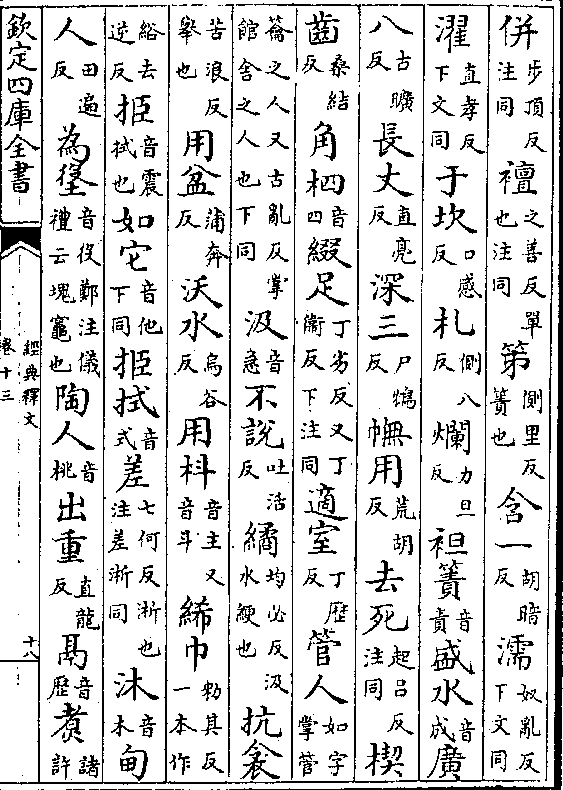 併步頂反注同襢之善反單也注同第側里反簀也含一胡暗反濡奴亂反下文同
濯直孝反下文同于坎口感反札側八反爛力旦反袒簀音責盛水音成廣
八古曠反長丈直亮反深三尸鴆反幠用荒胡反去死起呂反注同楔
齒桑結反角柶音四綴足丁劣反又丁衛反下注同適室丁歷反管人如字掌管
籥之人又古亂反掌館舍之人也下同汲音急不說吐活反繘均必反汲水綆也抗衾
苦浪反舉也用盆蒲奔反沃水烏谷反用枓音主又音斗絺巾勑其反一本作
綌去逆反挋音震拭也如它音他下同挋拭音式差七何反淅也注差淅同沐音木甸
人田遍反為垼音役鄭注儀禮云塊竈也陶人音桃出重直龍反鬲音歷煑諸許
欽定四庫全書
經典釋文
卷十三
十八